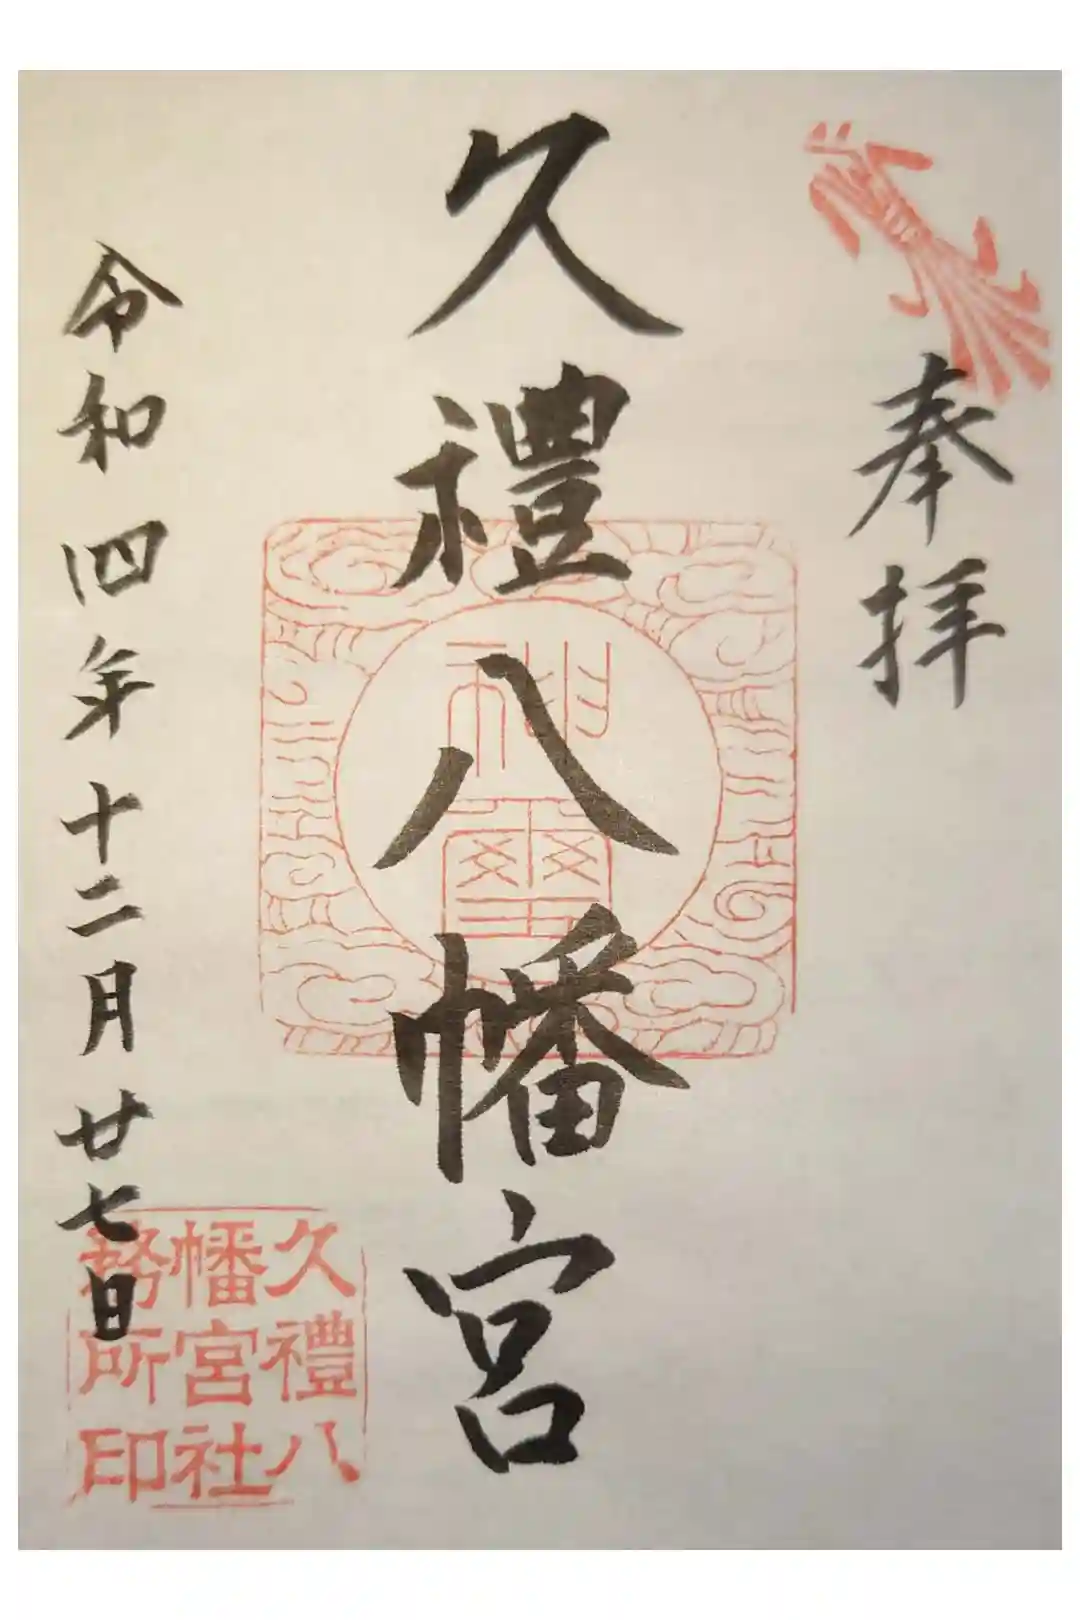 奉拝
久禮八幡宮
令和四年十二月廿七日
神璽
久禮八
幡宮社
務所印